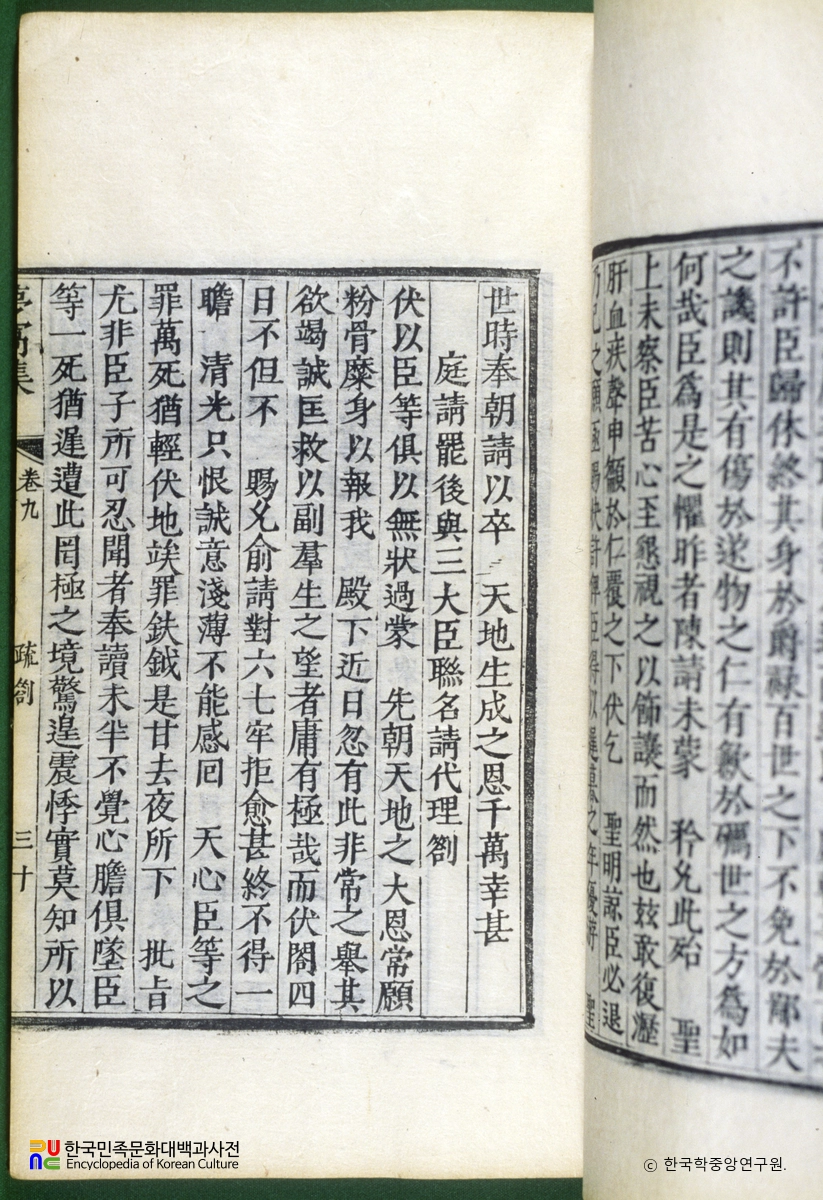 不許臣歸休終其身於爵祿百世之下不免於鄙夫
之譏則其有傷於遂物之仁有歉於礪世之方爲如
何哉臣爲是之懼昨者陳請未蒙 矜允此殆 聖
上未察臣苦心至懇視之以飾讓而然也玆敢復瀝
肝血疾聲申籲於仁覆之下伏乞 聖明諒臣必退
世時奉朝請以卒 天地生成之恩千萬幸甚
庭請罷後與三大臣聯名請代理劄
伏以臣等俱以無狀過蒙 先朝天地之大恩常願
粉骨糜身以報我 殿下近日忽有此非常之舉其
欲竭誠匡救以副羣生之望者庸有極哉而伏閤四
日不但不 賜允俞請對六七牢拒愈甚終不得一
瞻 清光只恨誠意淺薄不能感回 天心臣等之
罪萬死猶輕伏地竢罪鈇鉞是甘去夜所下 批旨
尤非臣子所可忍聞者奉讀未半不覺心膽俱墜臣
等一死猶遲遭此罔極之境驚遑震悸實莫知所以
夢窩集 卷九 疏劄 三十
한국민족문화대백과사전
Encyclopedia of Korean Culture
ⓒ 한국학중앙연구원.